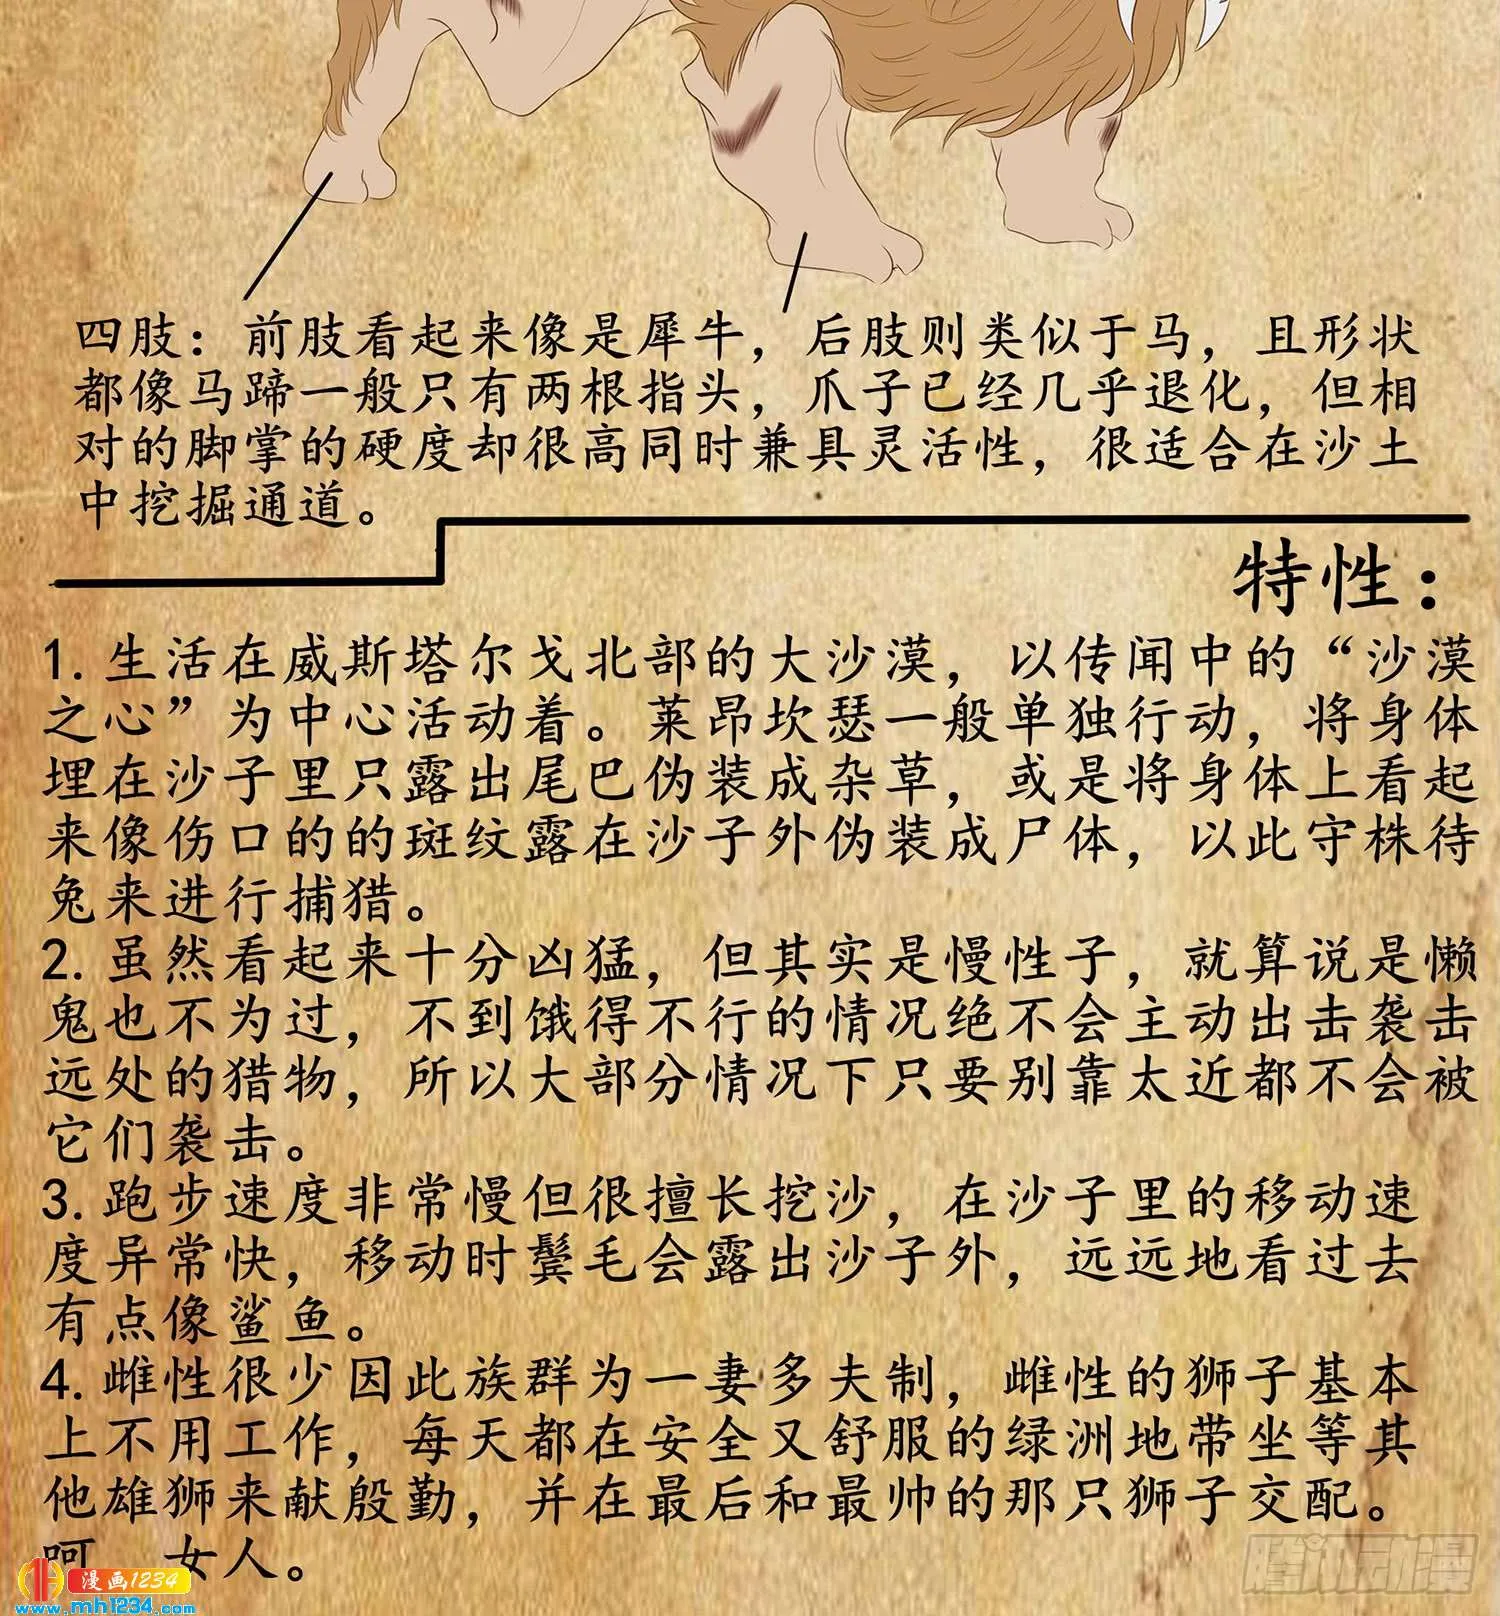 四肢：前肢看起来像是犀牛，后肢则类似于马，且形状
都像马蹄一般只有两根指头，爪子已经几乎退化，但相
对的脚掌的硬度却很高同时兼具灵活性，很适合在沙土
中挖掘通道。
特性：
1. 生活在威斯塔尔戈北部的大沙漠，以传闻中的“沙漠
之心”为中心活动着。莱昂坎瑟一般单独行动，将身体
埋在沙子里只露出尾巴伪装成杂草，或是将身体上看起
来像伤口的的斑纹露在沙子外伪装成尸体，以此守株待
兔来进行捕猎。
2. 虽然看起来十分凶猛，但其实是慢性子，就算说是懒
鬼也不为过，不到饿得不行的情况绝不会主动出击袭击
远处的猎物，所以大部分情况下只要别靠太近都不会被
它们袭击。
3. 跑步速度非常慢但很擅长挖沙，在沙子里的移动速
度异常快，移动时鬓毛会露出沙子外，远远地看过去
有点像鲨鱼。
4. 雌性很少因此族群为一妻多夫制，雌性的狮子基本
上不用工作，每天都在安全又舒服的绿洲地带坐等其
他雄狮来献殷勤，并在最后和最帅的那只狮子交配。
呵 女人。
漫画1234
www.mh1234.com
腾讯动漫